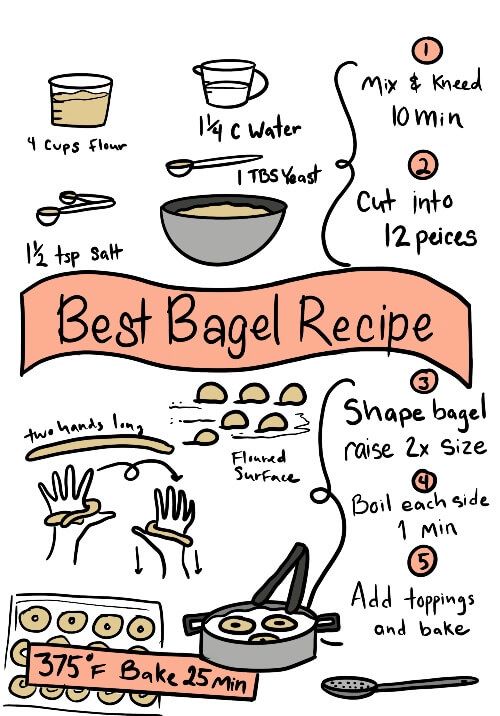 4 cups flour
1 1/4 C Water
1 TBS Yeast
1 1/2 tsp Salt
1
Mix & Kneed
10 min
2
Cut into
12 peices
Best Bagel Recipe
two hands long
Floured
Surface
3
Shape bagel
raise 2x Size
4
Boil each side
1 Min
5
Add toppings
and bake
375°F Bake 25 Min